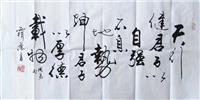 天行
健君子
以自強
不息
地勢
坤君子
以厚德
載物